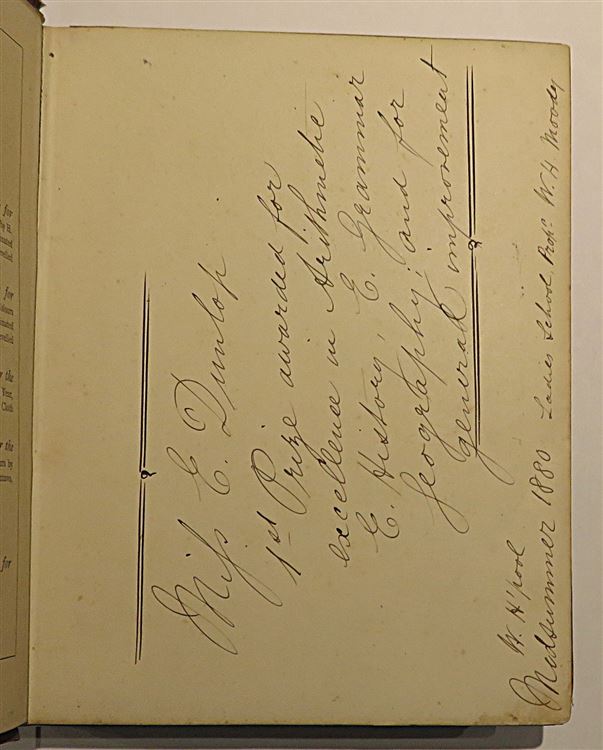 Miss E. Dunlop
1st Prize awarded for
excellence in Arithmetic
E. History, E. Grammar
Geography; and for
general improvement
W. H'pool
Midsummer 1880 Ladies School W. H Moody